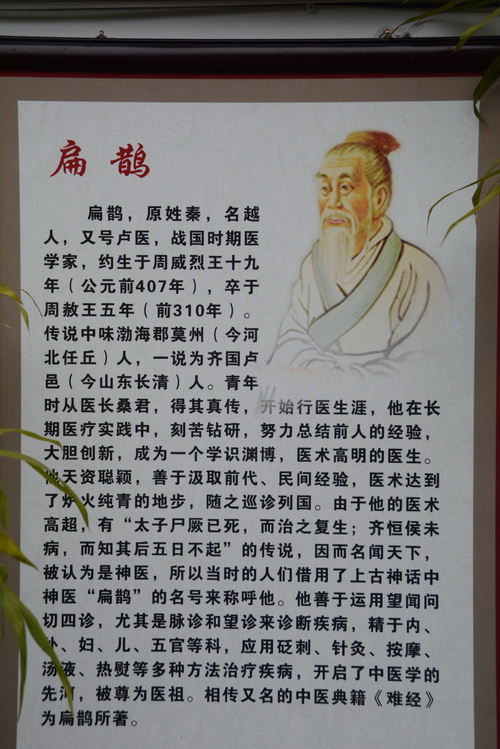 扁鹊
扁鹊，原姓秦，名越
人，又号卢医，战国时期医
学家，约生于周威烈王十九
年（公元前407年），卒于
周赧王五年（前310年）。
传说中味渤海郡莫州（今河
北任丘）人，一说为齐国卢
邑（今山东长清）人。青年
时从医长桑君，得其真传，开始行医生涯，他在长
期医疗实践中，刻苦钻研，努力总结前人的经验，
大胆创新，成为一个学识渊博，医术高明的医生。
他天资聪颖，善于汲取前代、民间经验，医术达到
了炉火纯青的地步，随之巡诊列国。由于他的医术
高超，有“太子尸厥已死，而治之复生；齐恒侯未
病，而知其后五日不起”的传说，因而名闻天下，
被认为是神医，所以当时的人们借用了上古神话中
神医“扁鹊”的名号来称呼他。他善于运用望闻问
切四诊，尤其是脉诊和望诊来诊断疾病，精于内、
外、妇、儿、五官等科，应用砭刺、针灸、按摩、
汤液、热熨等多种方法治疗疾病，开启了中医学的
先河，被尊为医祖。相传又名的中医典籍《难经》
为扁鹊所著。